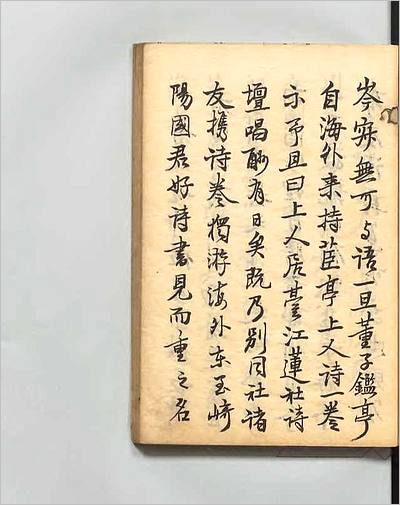 岑寂無可与語一旦董子鑑亭
自海外来持茞亭上人詩一巻
示予且曰上人居臺江蓮社詩
壇唱酬有日矣既乃別同社諸
友携詩巻獨游海外東至崎
陽國君好詩書見而重之名